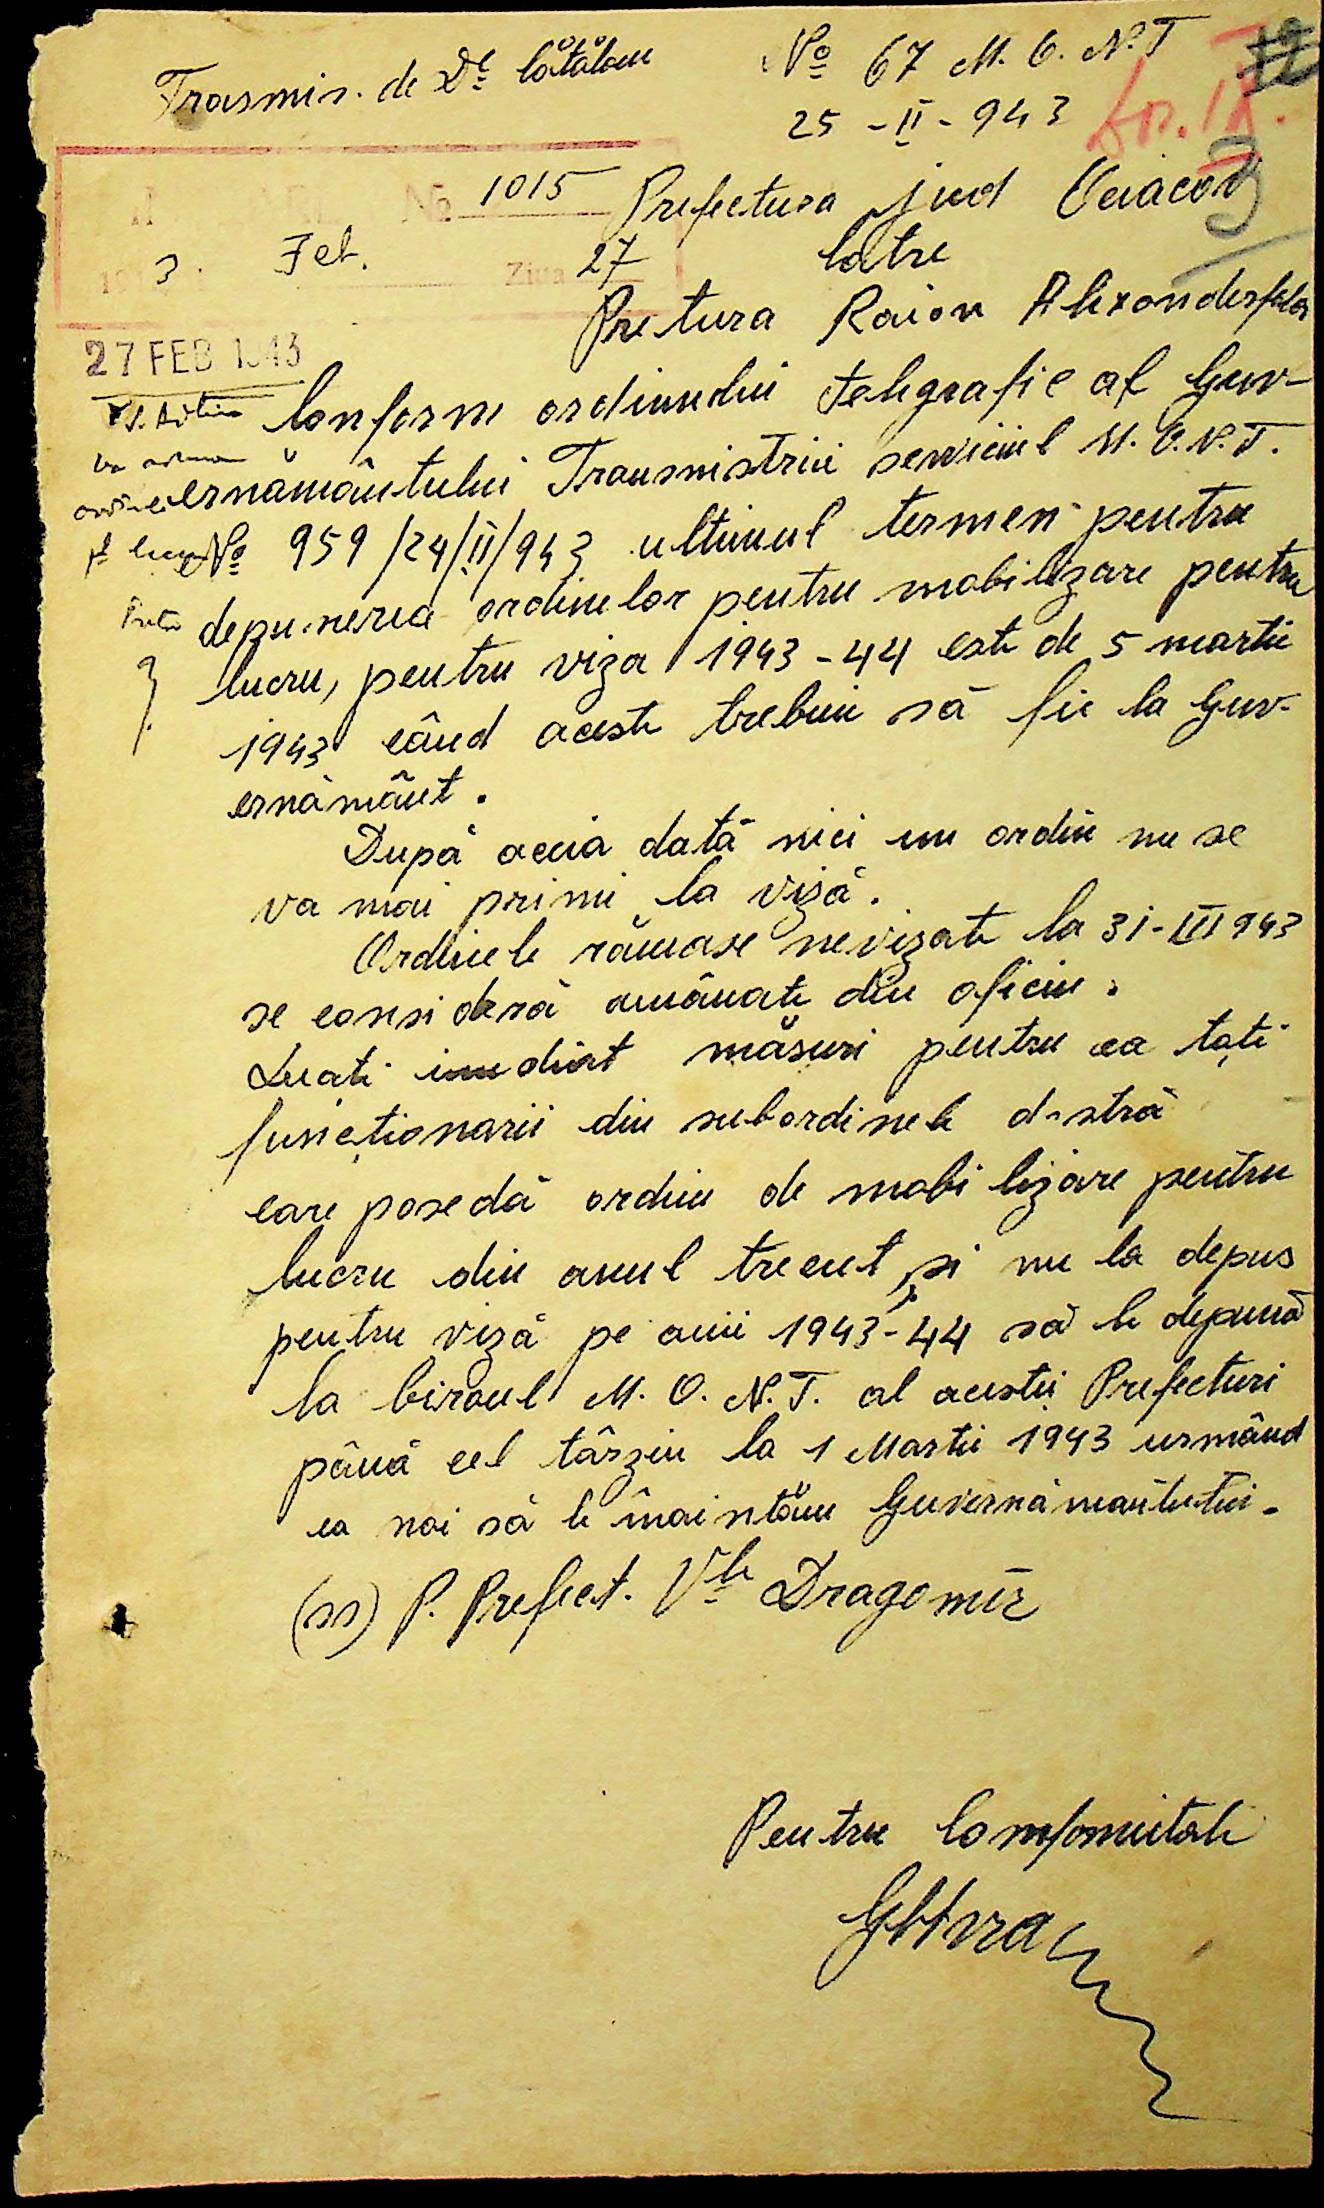 Trasmis. de Dl Cătălau
No 67 M. O. N. T
25 - II - 943
No 1015
Prefectura jud Oceacov
3 Feb. Ziua 27
Catre
Pretura Raion Alexanderfeld
27 FEB 1943
Conform ordinului telegrafic al Guv-
ernământului Transnistriei serviciul M. O. N. T.
No 959/24/II/943 ultimul termen pentru
depunerea ordinelor pentru mobilizare pentru
lucru, pentru viza 1943-44 este de 5 martie
1943 când aceste trebuie să fie la Guv-
ernământ.
După aceia dată nici un ordin nu se
va mai primi la viză.
Ordinele rămase nevizate la 31-III 943
se consideră amânate din oficiu.
Luați imediat măsuri pentru ca toți
funcționarii din subordinele d-stră
care posedă ordin de mobilizare pentru
lucru din anul trecut, și nu la depus
pentru viză pe anii 1943-44 să le depună
la biroul M. O. N. T. al acestei Prefecturi
până cel târziu la 1 Martie 1943 urmând
ca noi să le înaintăm Guvernământului.
(ss) P. Prefect. Vle Dragomir
Pentru Comformitate